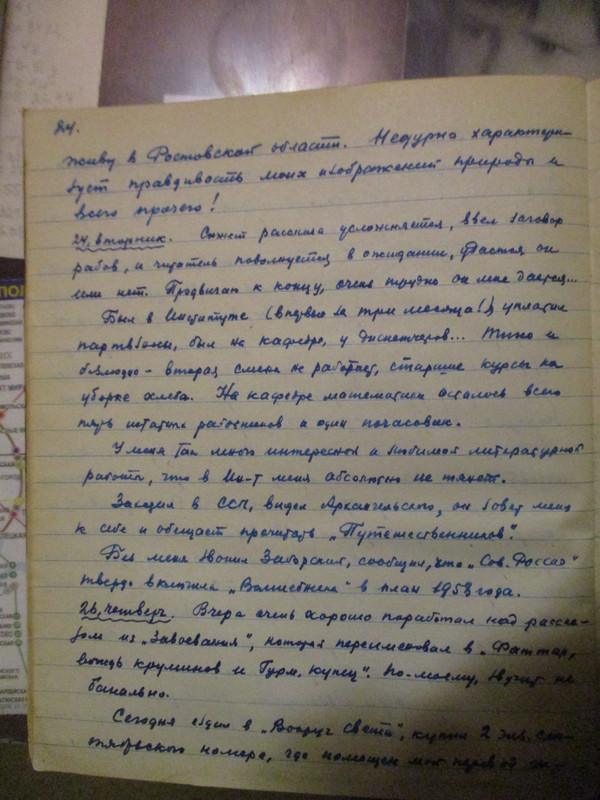 84.
живу в Ростовской области. Недурно характери-
зует правдивость моих изображений природы и
всего прочего!
24, вторник. Сюжет рассказа усложняется, ввел заговор
рабов, и читатель поволнуется в ожидании, удастся он
или нет. Продвигаю к концу, очень трудно он мне дается...
Был в Институте (впервые за три месяца!), уплатил
партвзносы, был на кафедре, у диспетчеров... Тихо и
безлюдно - вторая смена не работает, старшие курсы на
уборке хлеба. На кафедре математики осталось всего
пять штатных работников и один почасовик.
У меня так много интересной и любимой литературной
работы, что в Ин-т меня абсолютно не тянет.
Заходил в ССП, видел Архангельского, он зовет меня
к себе и обещает прочитать „Путешественников".
Без меня звонил Заборский, сообщил, что „Сов. Россия"
твердо включила „Волшебника" в план 1958 года.
26, четверг. Вчера очень хорошо поработал над расска-
зом из „Завоевания", который переименовал в „Фаттар,
вождь круминов и Гурм, купец". По-моему, звучит не
банально.
Сегодня ездил в „Вокруг света", купил 2 экз. сен-
тябрьского номера, где помещен мой перевод